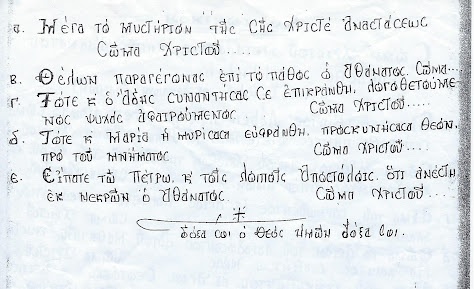 α. Μέγα τὸ μυστήριον τῆς Σῆς Χριστὲ ἀναστάσεως
Σῶμα Χριστοῦ.....
β. Θέλων παραγέγονας ἐπὶ τὸ πάθος ὁ Ἀθάνατος. Σῶμα...
γ. Τότε κ ὁ Ἅδης συναντήσας Σε ἐπικράνθη, λογοθετούμε-
νος ψυχὰς ἀφαιρούμενος. Σῶμα Χριστοῦ....
δ. Τότε κ Μαρία ἡ μυρίσασα εὐφράνθη, προσκυνήσασα Θεόν,
πρὸ τοῦ μνήματος Σῶμα Χριστοῦ....
ε. Εἴπατε τῷ Πέτρῳ κ τοῖς λοιποῖς ἀποστόλοις. ὅτι ἀνέστη
ἐκ νεκρῶν ὁ Ἀθάνατος. Σῶμα Χριστοῦ....
δόξα σοι ὁ Θεός ἡμῶν δόξα σοι.